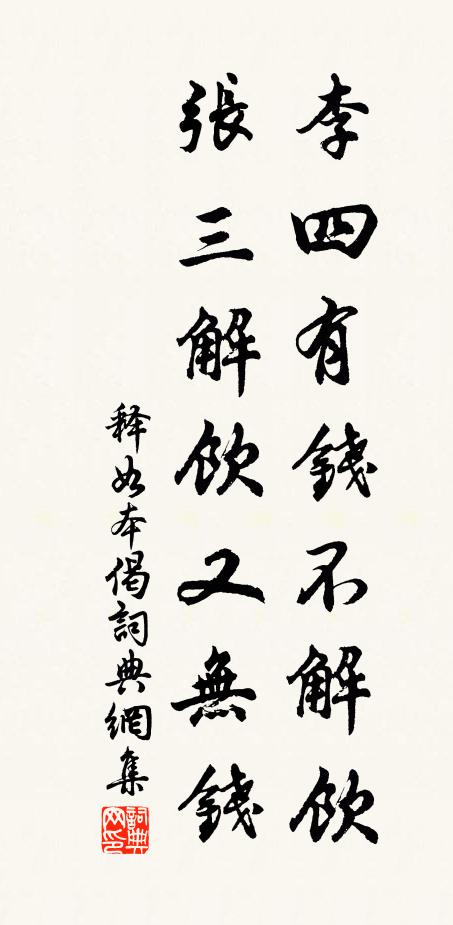 李四有錢不解飲
張三解飲又無錢
释如本偈詞典網集
詞典网印